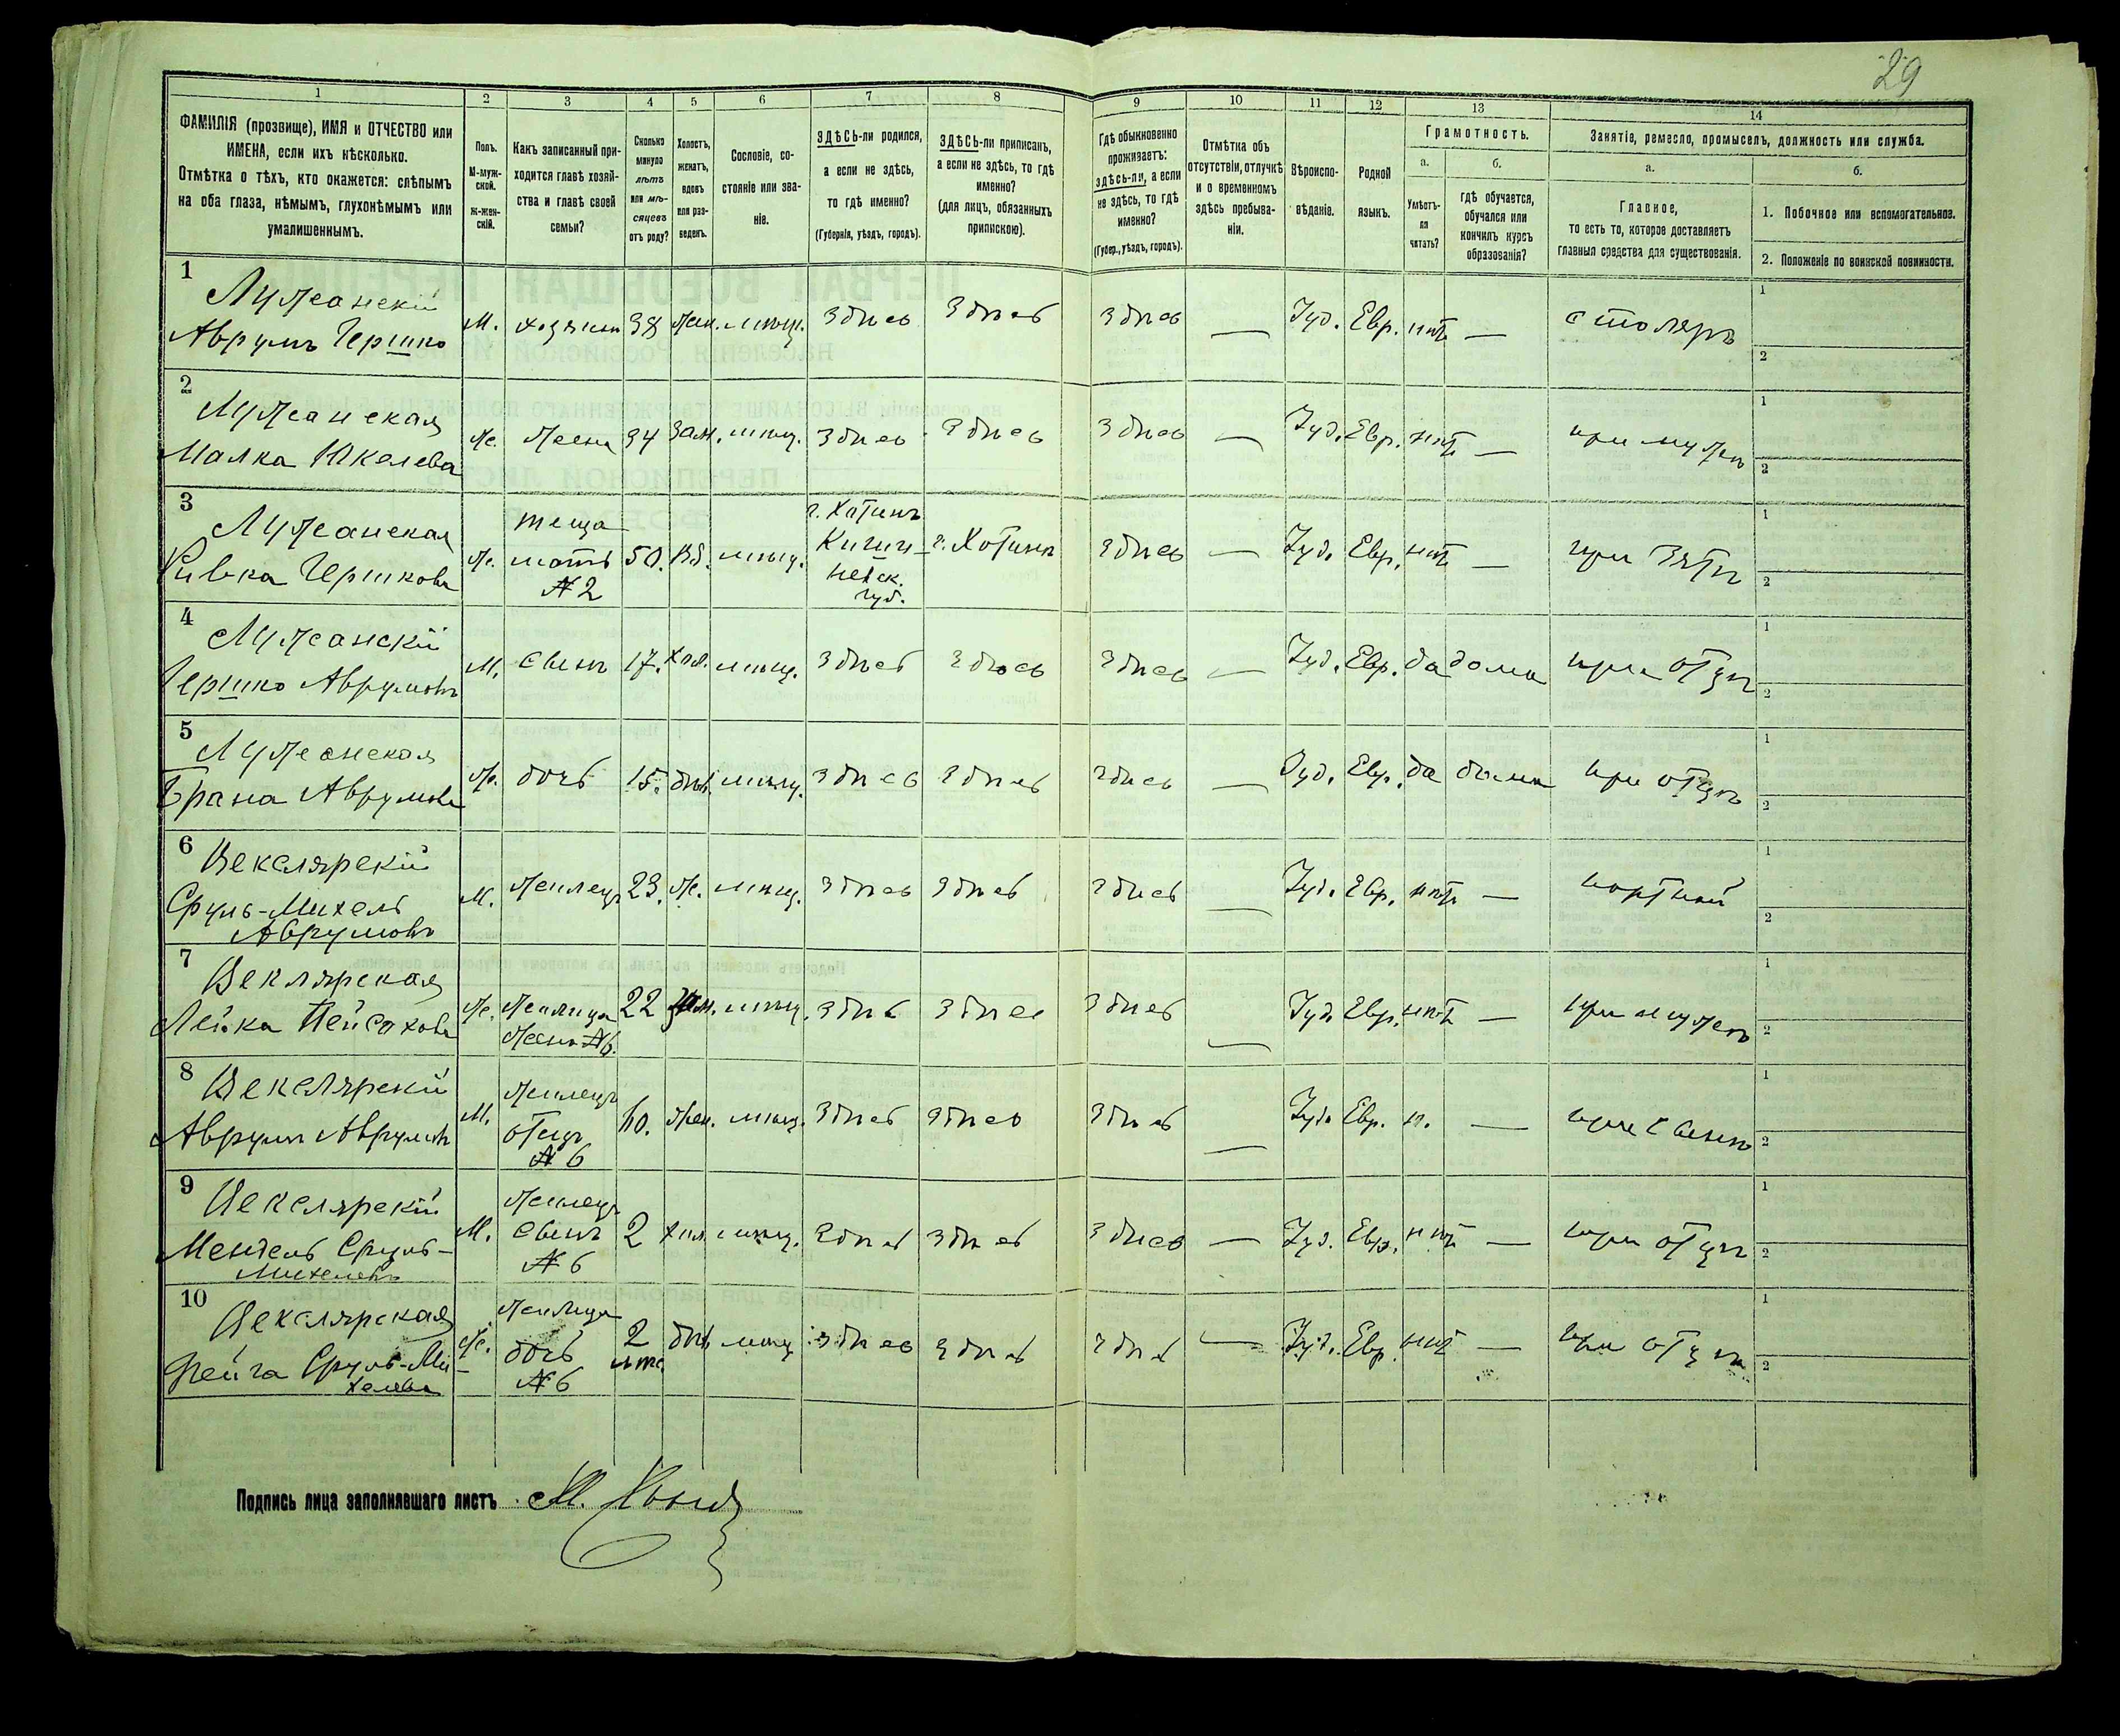 29
1 2 3 4 5 6 7 8 9 10 11 12 13 14
ФАМИЛІЯ (прозвище), ИМЯ и ОТЧЕСТВО или ИМЕНА, если ихъ нѣсколько.
Отмѣтка о тѣхъ, кто окажется: слѣпымъ на оба глаза, нѣмымъ, глухонѣмымъ или умалишеннымъ.
Полъ. М-мужской. Ж-женскій.
Какъ записанный приходится главѣ хозяйства и главѣ своей семьи?
Сколько минуло лѣтъ или мѣсяцевъ отъ роду?
Холостъ, женатъ, вдовъ или разведенъ.
Сословіе, состояніе или званіе.
ЗДѢСЬ-ли родился, а если не здѣсь, то гдѣ именно? (Губернія, уѣздъ, городъ).
ЗДѢСЬ-ли приписанъ, а если не здѣсь, то гдѣ именно? (для лицъ, обязанныхъ припискою).
Гдѣ обыкновенно проживаетъ: здѣсь-ли, а если не здѣсь, то гдѣ именно? (Губер., уѣздъ, городъ).
Отмѣтка объ отсутствіи, отлучкѣ и о временномъ здѣсь пребываніи.
Вѣроисповѣданіе.
Родной языкъ.
Грамотность.
а. Умѣетъ-ли читать?
б. гдѣ обучается, обучался или кончилъ курсъ образованія?
Занятіе, ремесло, промыселъ, должность или служба.
а. Главное, то есть то, которое доставляетъ главныя средства для существованія.
б. 1. Побочное или вспомогательное.
2. Положеніе по воинской повинности.
1 Лужанскій Аврумъ Гершко М. хозяинъ 38 жен. мѣщ. здѣсь здѣсь здѣсь — Іуд. Евр. нѣтъ — столяръ 1 2
2 Лужанская Малка Юкелева Ж. жена 34 зам. мѣщ. здѣсь здѣсь здѣсь — Іуд. Евр. нѣтъ — при мужѣ 1 2
3 Лужанская Ривка Гершкова Ж. теща мать №2 50. вд. мѣщ. г. Хотинъ Кишиневск. губ. г. Хотинъ здѣсь — Іуд. Евр. нѣтъ — при зятѣ 1 2
4 Лужанскій Гершко Аврумовъ М. сынъ 17. хол. мѣщ. здѣсь здѣсь здѣсь — Іуд. Евр. да дома при отцѣ 1 2
5 Лужанская Брана Аврумова Ж. дочь 15. дѣв. мѣщ. здѣсь здѣсь здѣсь — Іуд. Евр. да дома при отцѣ 1 2
6 Векслярскій Сруль-Михель Аврумовъ М. жилецъ 23. ж. мѣщ. здѣсь здѣсь здѣсь — Іуд. Евр. нѣтъ — портной 1 2
7 Веклярская Лейка Пейсахова Ж. жилица жена №6. 22 зам. мѣщ. здѣсь здѣсь здѣсь — Іуд. Евр. нѣтъ — при мужѣ 1 2
8 Векслярскій Аврумъ Аврумовъ М. жилецъ отецъ №6 60. жен. мѣщ. здѣсь здѣсь здѣсь — Іуд. Евр. н. — при сынѣ 1 2
9 Векслярскій Мендель Сруль-Михелевъ М. жилецъ сынъ №6 2 хол. мѣщ. здѣсь здѣсь здѣсь — Іуд. Евр. нѣтъ — при отцѣ 1 2
10 Векслярская Фейга Сруль-Михелева Ж. жилица дочь №6 2 дѣв. мѣщ. здѣсь здѣсь здѣсь — Іуд. Евр. нѣтъ — при отцѣ 1 2
Подпись лица заполнявшаго листъ М.